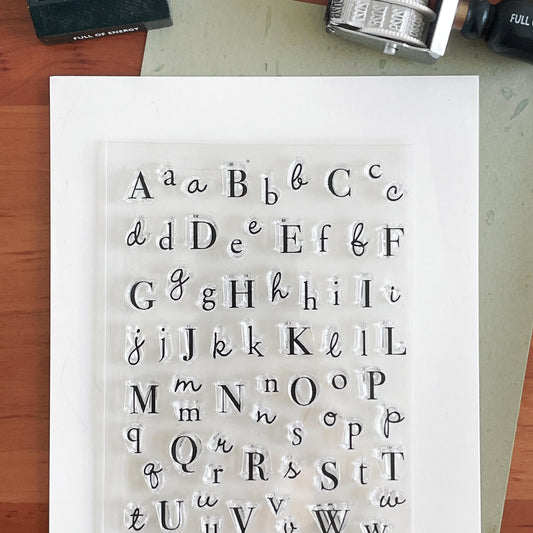 FULL OF ENERGY
FULL O
A a a B b b C c c
d d D e e E f f F
G g g H h h i I i
j j J k k K l l L
M m m N n n O o o P p p
q q Q r r R s s S t T
t U u u V v v W w w